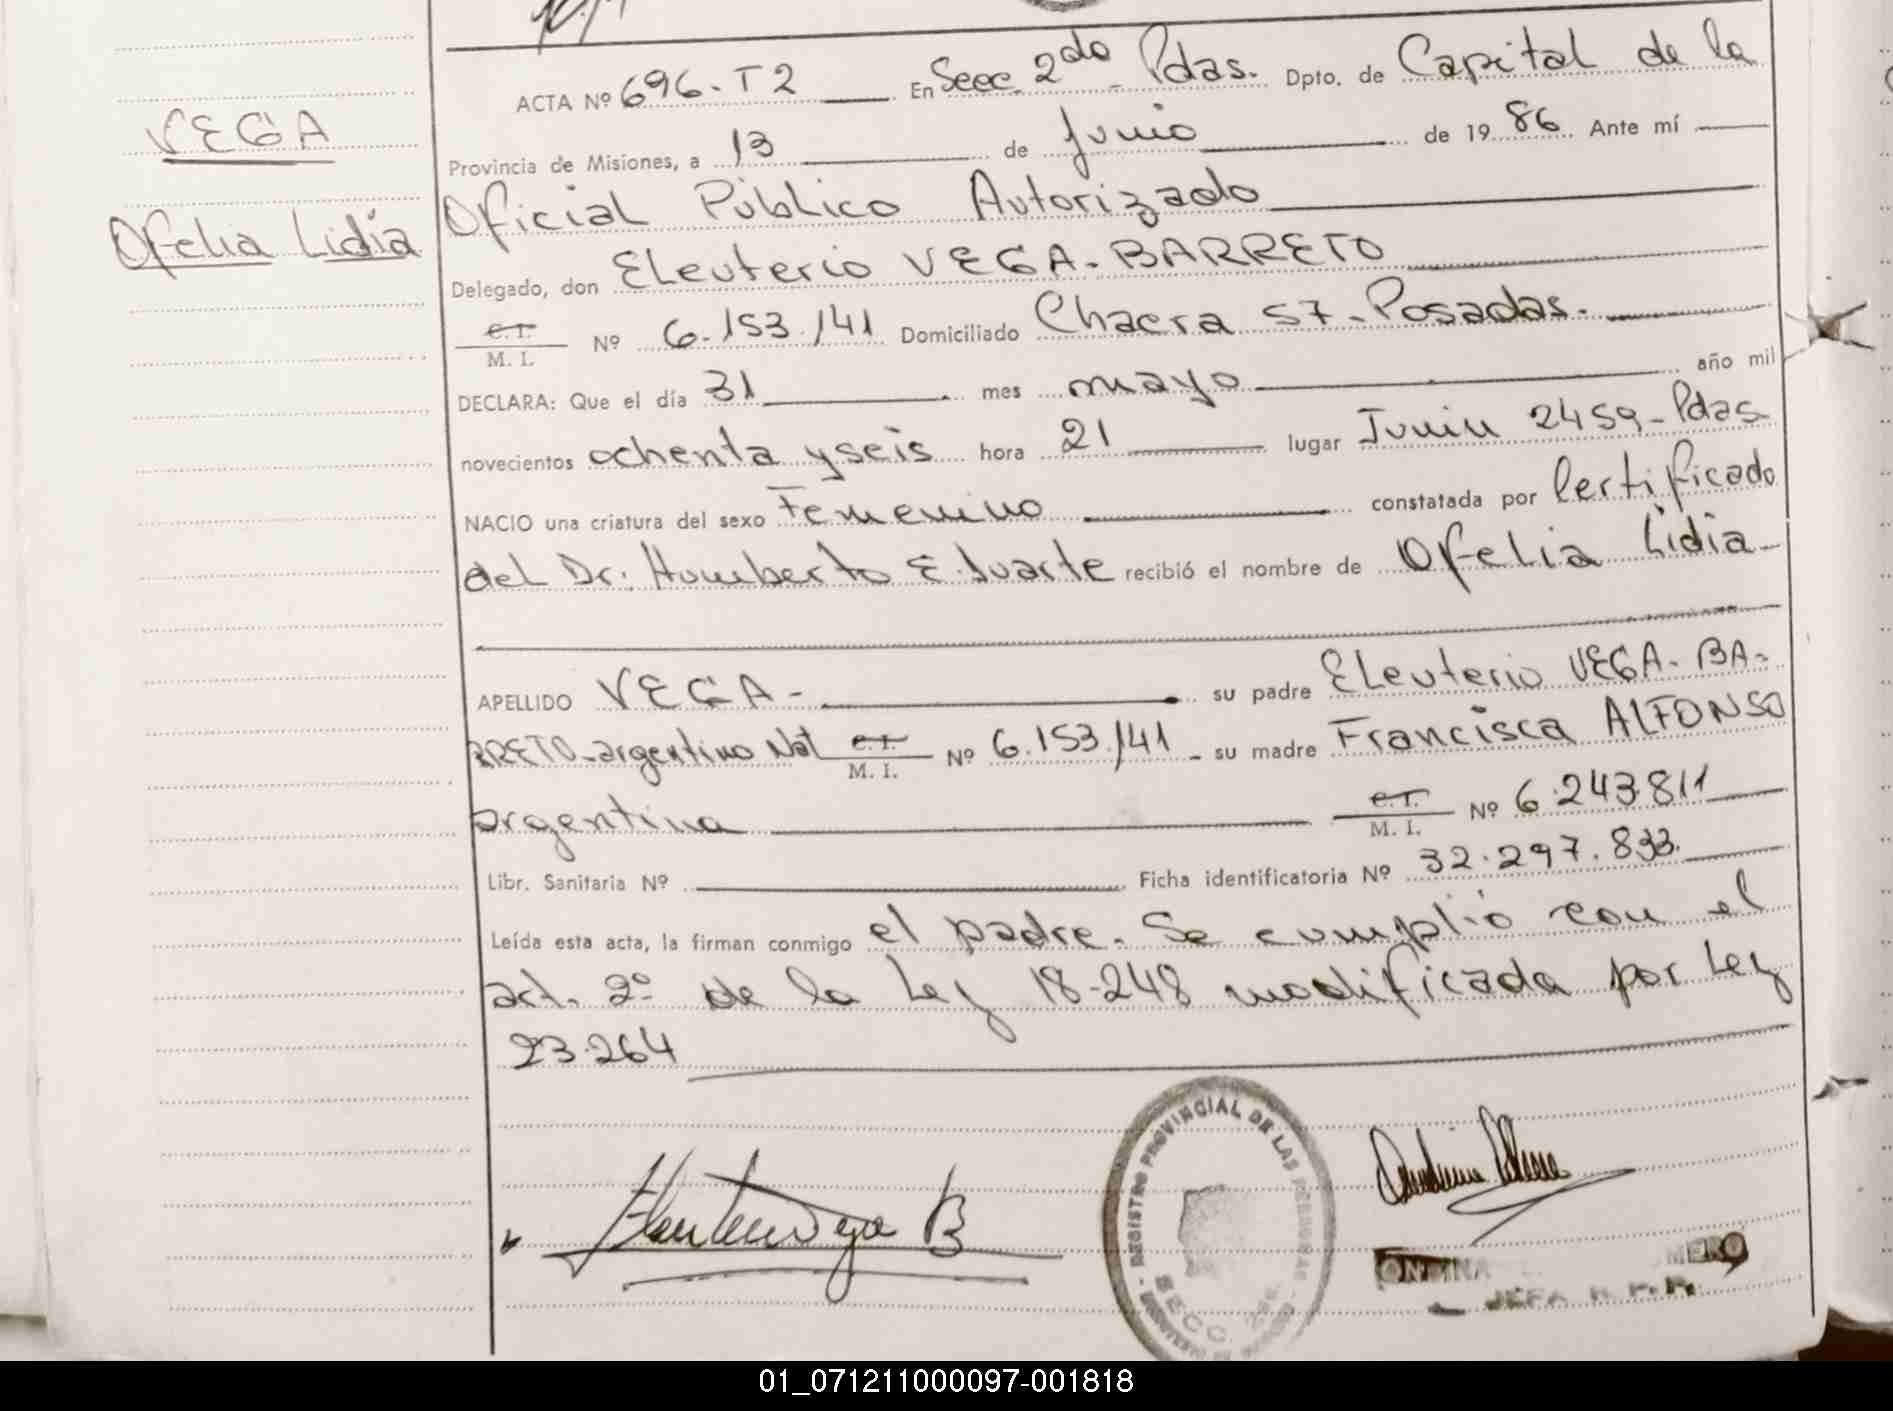 VEGA
Ofelia Lidia
ACTA Nº 696. T2 En Secc. 2do Pdas. Dpto. de Capital de la
Provincia de Misiones, a 13 de junio de 1986. Ante mí
Oficial Público Autorizado
Delegado, don Eleuterio VEGA-BARRETO
C. I.
M. I. Nº 6.153.141 Domiciliado Chacra 57-Posadas.
DECLARA: Que el día 31 mes mayo año mil
novecientos ochenta y seis hora 21 lugar Junin 2459-Pdas.
NACIO una criatura del sexo Femenino constatada por Certificado
del Dr. Humberto E. Duarte recibió el nombre de Ofelia Lidia-
APELLIDO VEGA- su padre Eleuterio VEGA-BA-
RRETO-argentino Nat C. I.
M. I. Nº 6.153.141- su madre Francisca ALFONSO
argentina C. I.
M. I. Nº 6.243.811
Libr. Sanitaria Nº Ficha identificatoria Nº 32.297.833.
Leída esta acta, la firman conmigo el padre. Se cumplió con el
art. 2º de la Ley 18.248 modificada por Ley
23.264
REGISTRO PROVINCIAL DE LAS PERSONAS
SECC.
JEFA R. P. P.
01_071211000097-001818